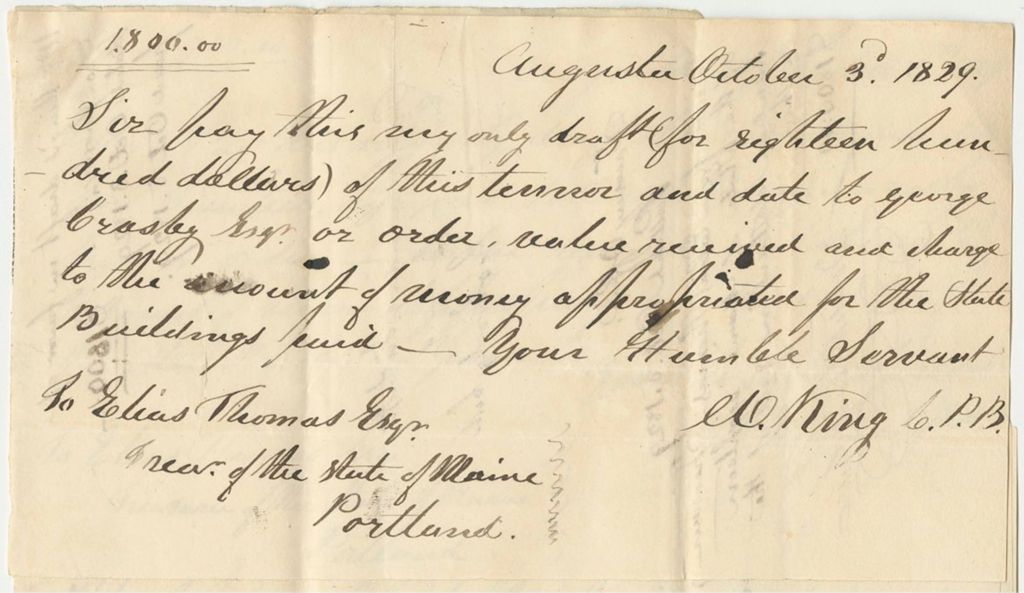 1.800.00
Augusta October 3d. 1829.
Sir pay this my only draft (for eighteen hun-
-dred dollars) of this tennor and date to george
Crosby Esqr. or order, value received and charge
to the amount of money appropriated for the State
Buildings fund — Your Humble Servant
Wm. King C. P. B.
To Elias Thomas Esqr.
Trear. of the state of Maine
Portland.